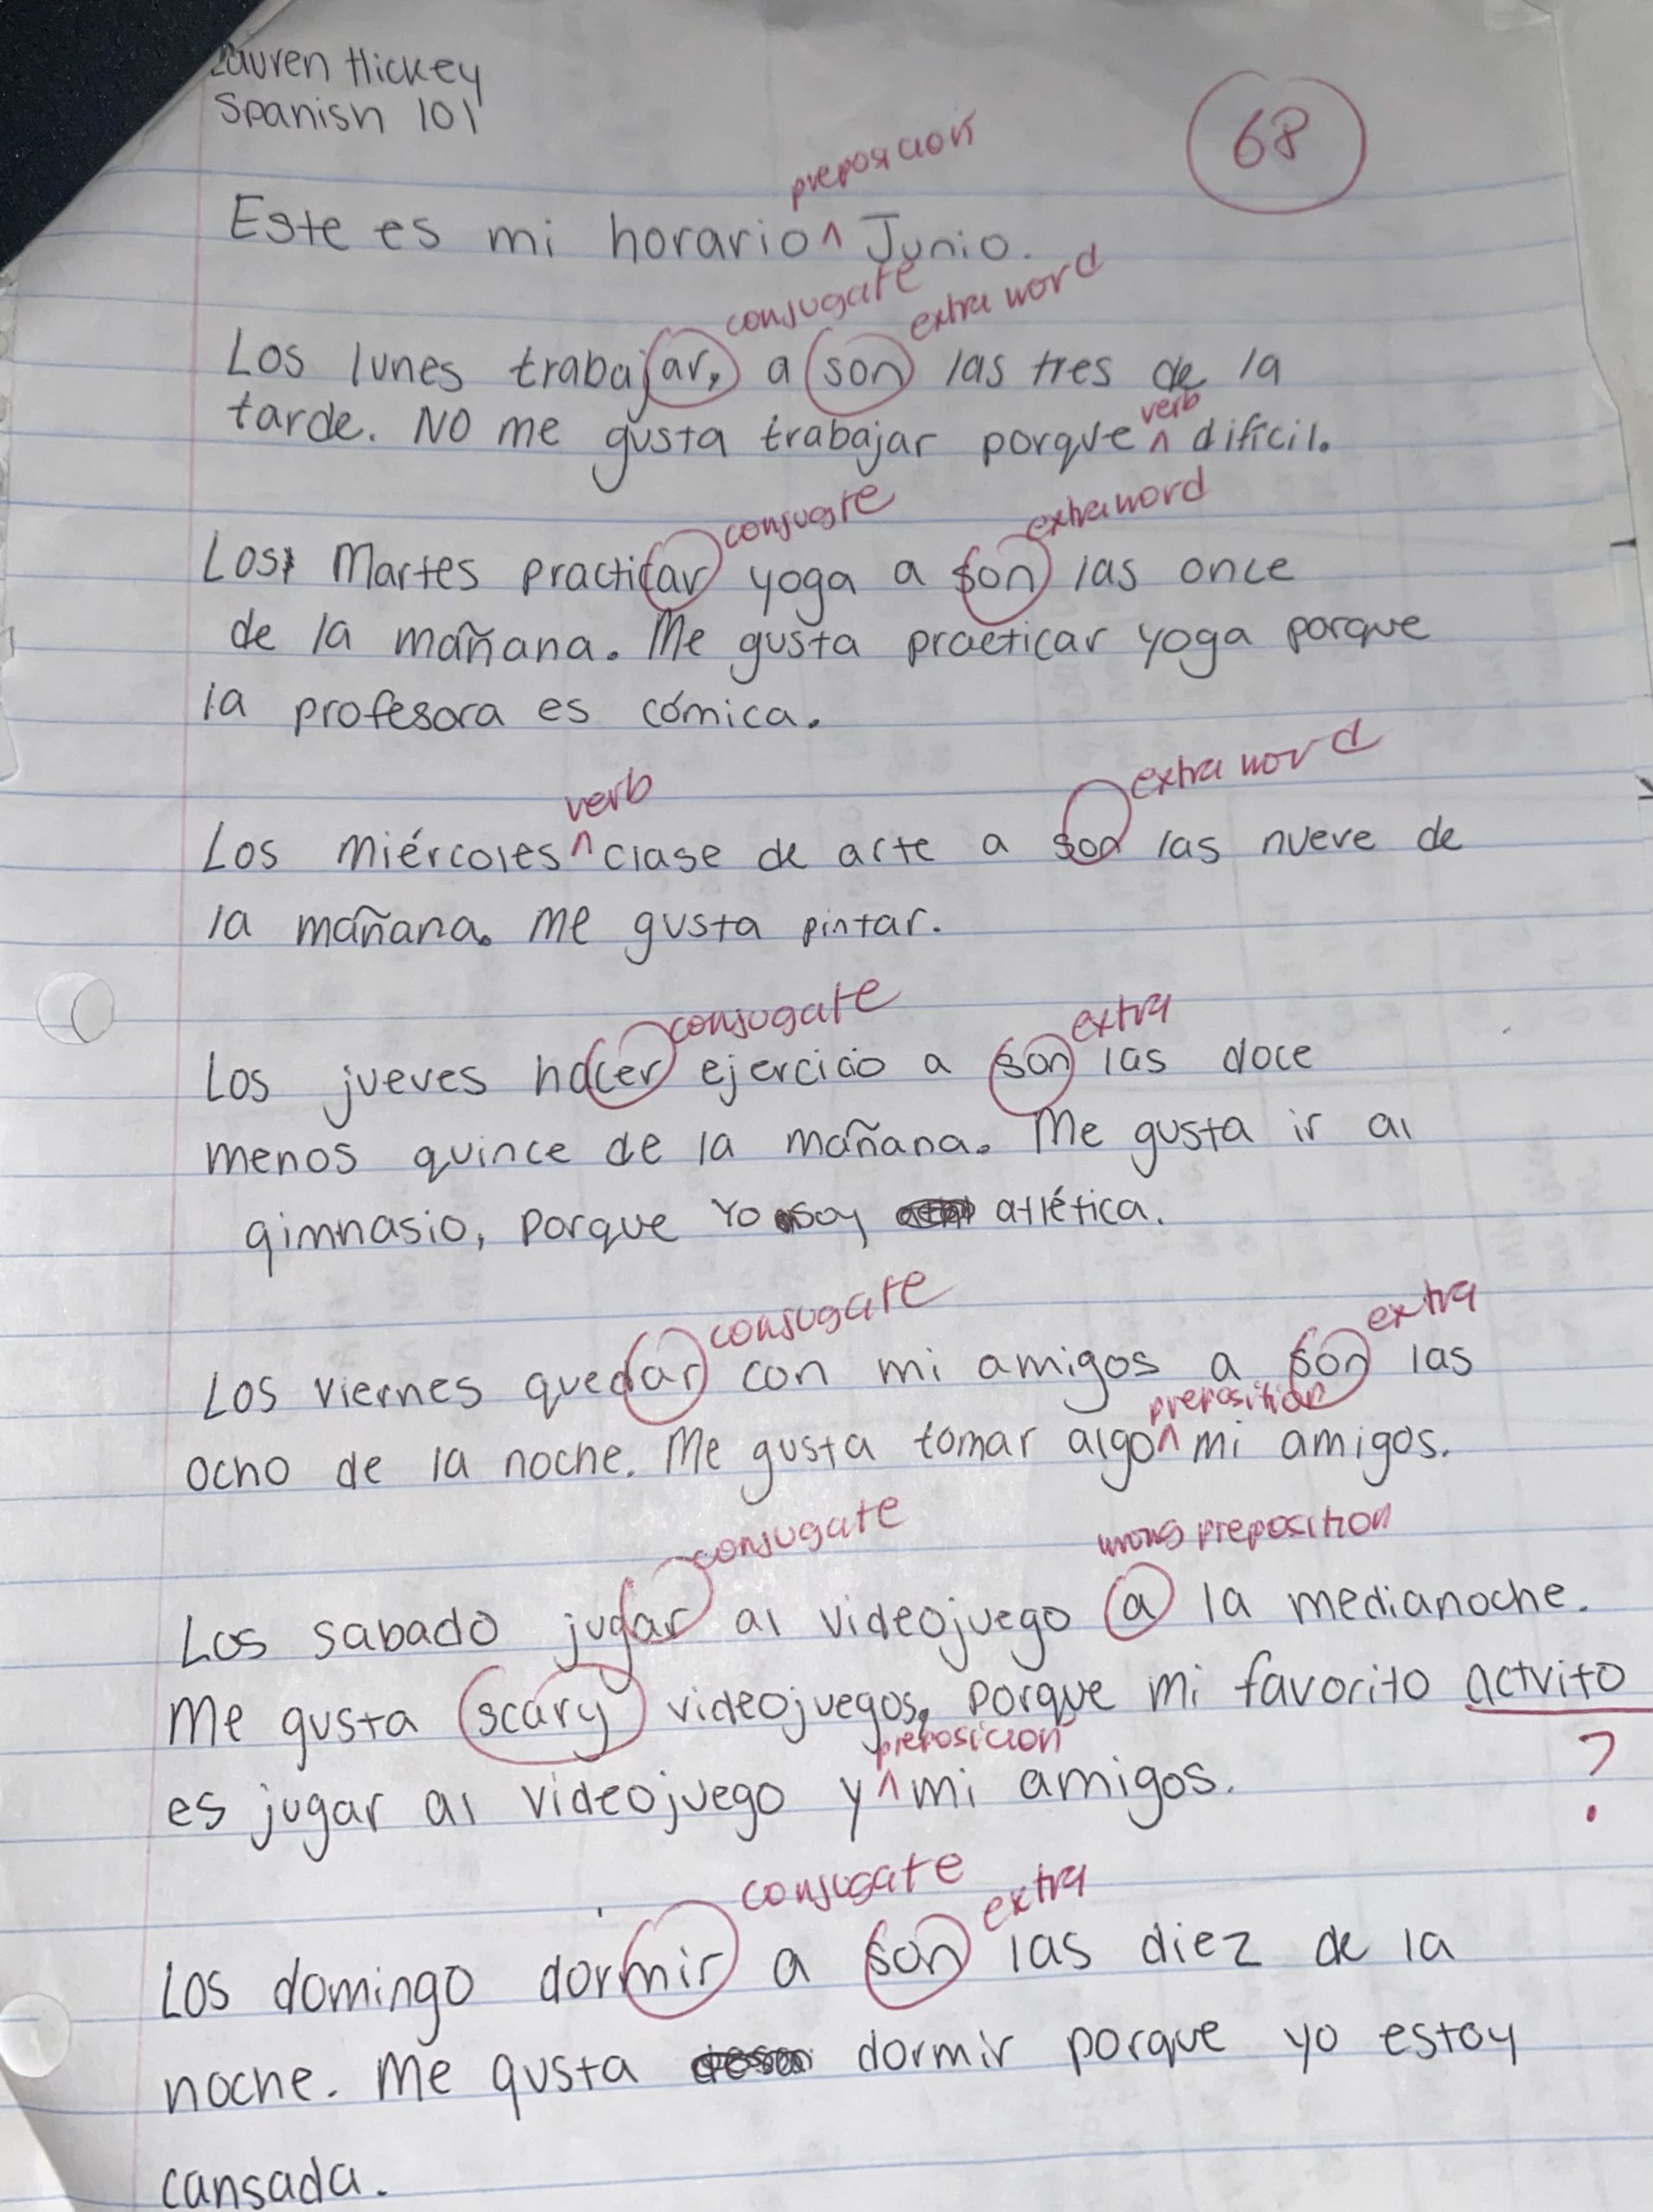 Lauren Hickey
Spanish 101
68
preposicion
Este es mi horario ^ Junio.
conjugate extra word
Los lunes trabajar, a son las tres de la
verb
tarde. No me gusta trabajar porque ^ difícil.
conjugate extra word
Los Martes practicar yoga a son las once
de la mañana. Me gusta practicar yoga porque
la profesora es cómica.
verb extra word
Los miércoles ^ clase de arte a son las nueve de
la mañana. Me gusta pintar.
conjugate extra
Los jueves hacer ejercicio a son las doce
menos quince de la mañana. Me gusta ir al
gimnasio, porque Yo soy atlética.
conjugate extra
Los viernes quedar con mi amigos a son las
preposition
ocho de la noche. Me gusta tomar algo ^ mi amigos.
conjugate wrong preposition
Los sabado jugar al videojuego a la medianoche.
Me gusta scary videojuegos, porque mi favorito actvito
preposicion ?
es jugar al videojuego y ^ mi amigos.
conjugate extra
Los domingo dormir a son las diez de la
noche. Me gusta dormir porque yo estoy
cansada.